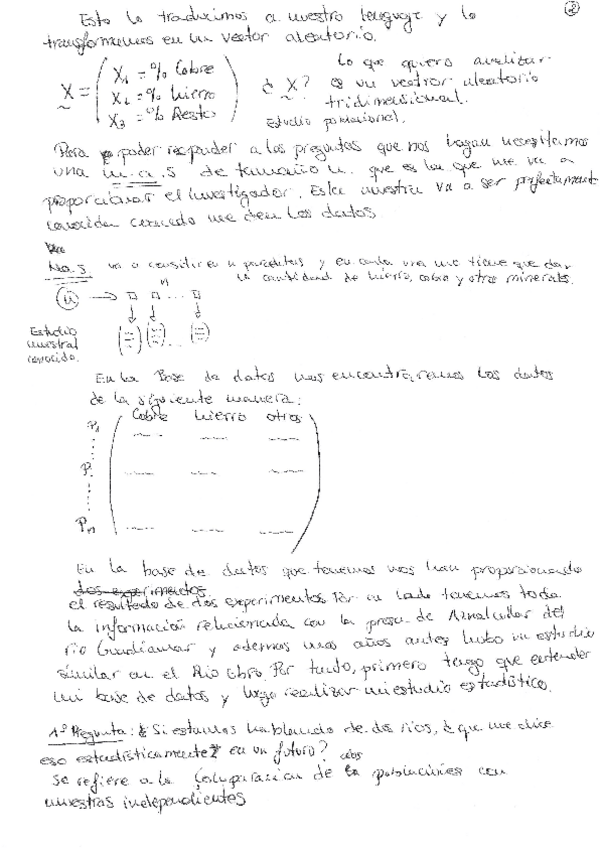 ②
Esto lo traducimos a nuestro lenguaje y lo
transformamos en un vector aleatorio.
X = ( X₁ = % Cobre
X₂ = % hierro
X₃ = % Resto )
¿ X ?
Lo que quiero analizar
es un vector aleatorio
tridimensional.
Estudio poblacional.
Para poder responder a las preguntas que nos hagan necesitamos
una m.a.s de tamaño n. que es la que me va a
proporcionar el investigador. Esta muestra va a ser perfectamente
conocida cuando me den los datos
M.a.s va a consistir en n paquetes y en cada una me tiene que dar
la cantidad de hierro, cobre y otros minerales.
n
...
Estudio
muestral
conocido.
En la Base de datos nos encontraremos los datos
de la siguiente manera:
Cobre hierro otros
P₁
P.
Pₙ
En la base de datos que tenemos nos han proporcionado
dos experimentos
el resultado de dos experimentos Por un lado tenemos toda
la información relacionada con la presa de Aznalcollar del
rio Guadiamar y ademas unos años antes hubo un estudio
similar en el Rio ebro. Por tanto, primero tengo que entender
mi base de datos y luego realizar mi estudio estadístico.
1ª Pregunta: ¿Si estamos hablando de dos rios, ¿que me dice
eso estadísticamente? en un futuro?
se refiere a la comparacion de dos poblaciones con
muestras independientes